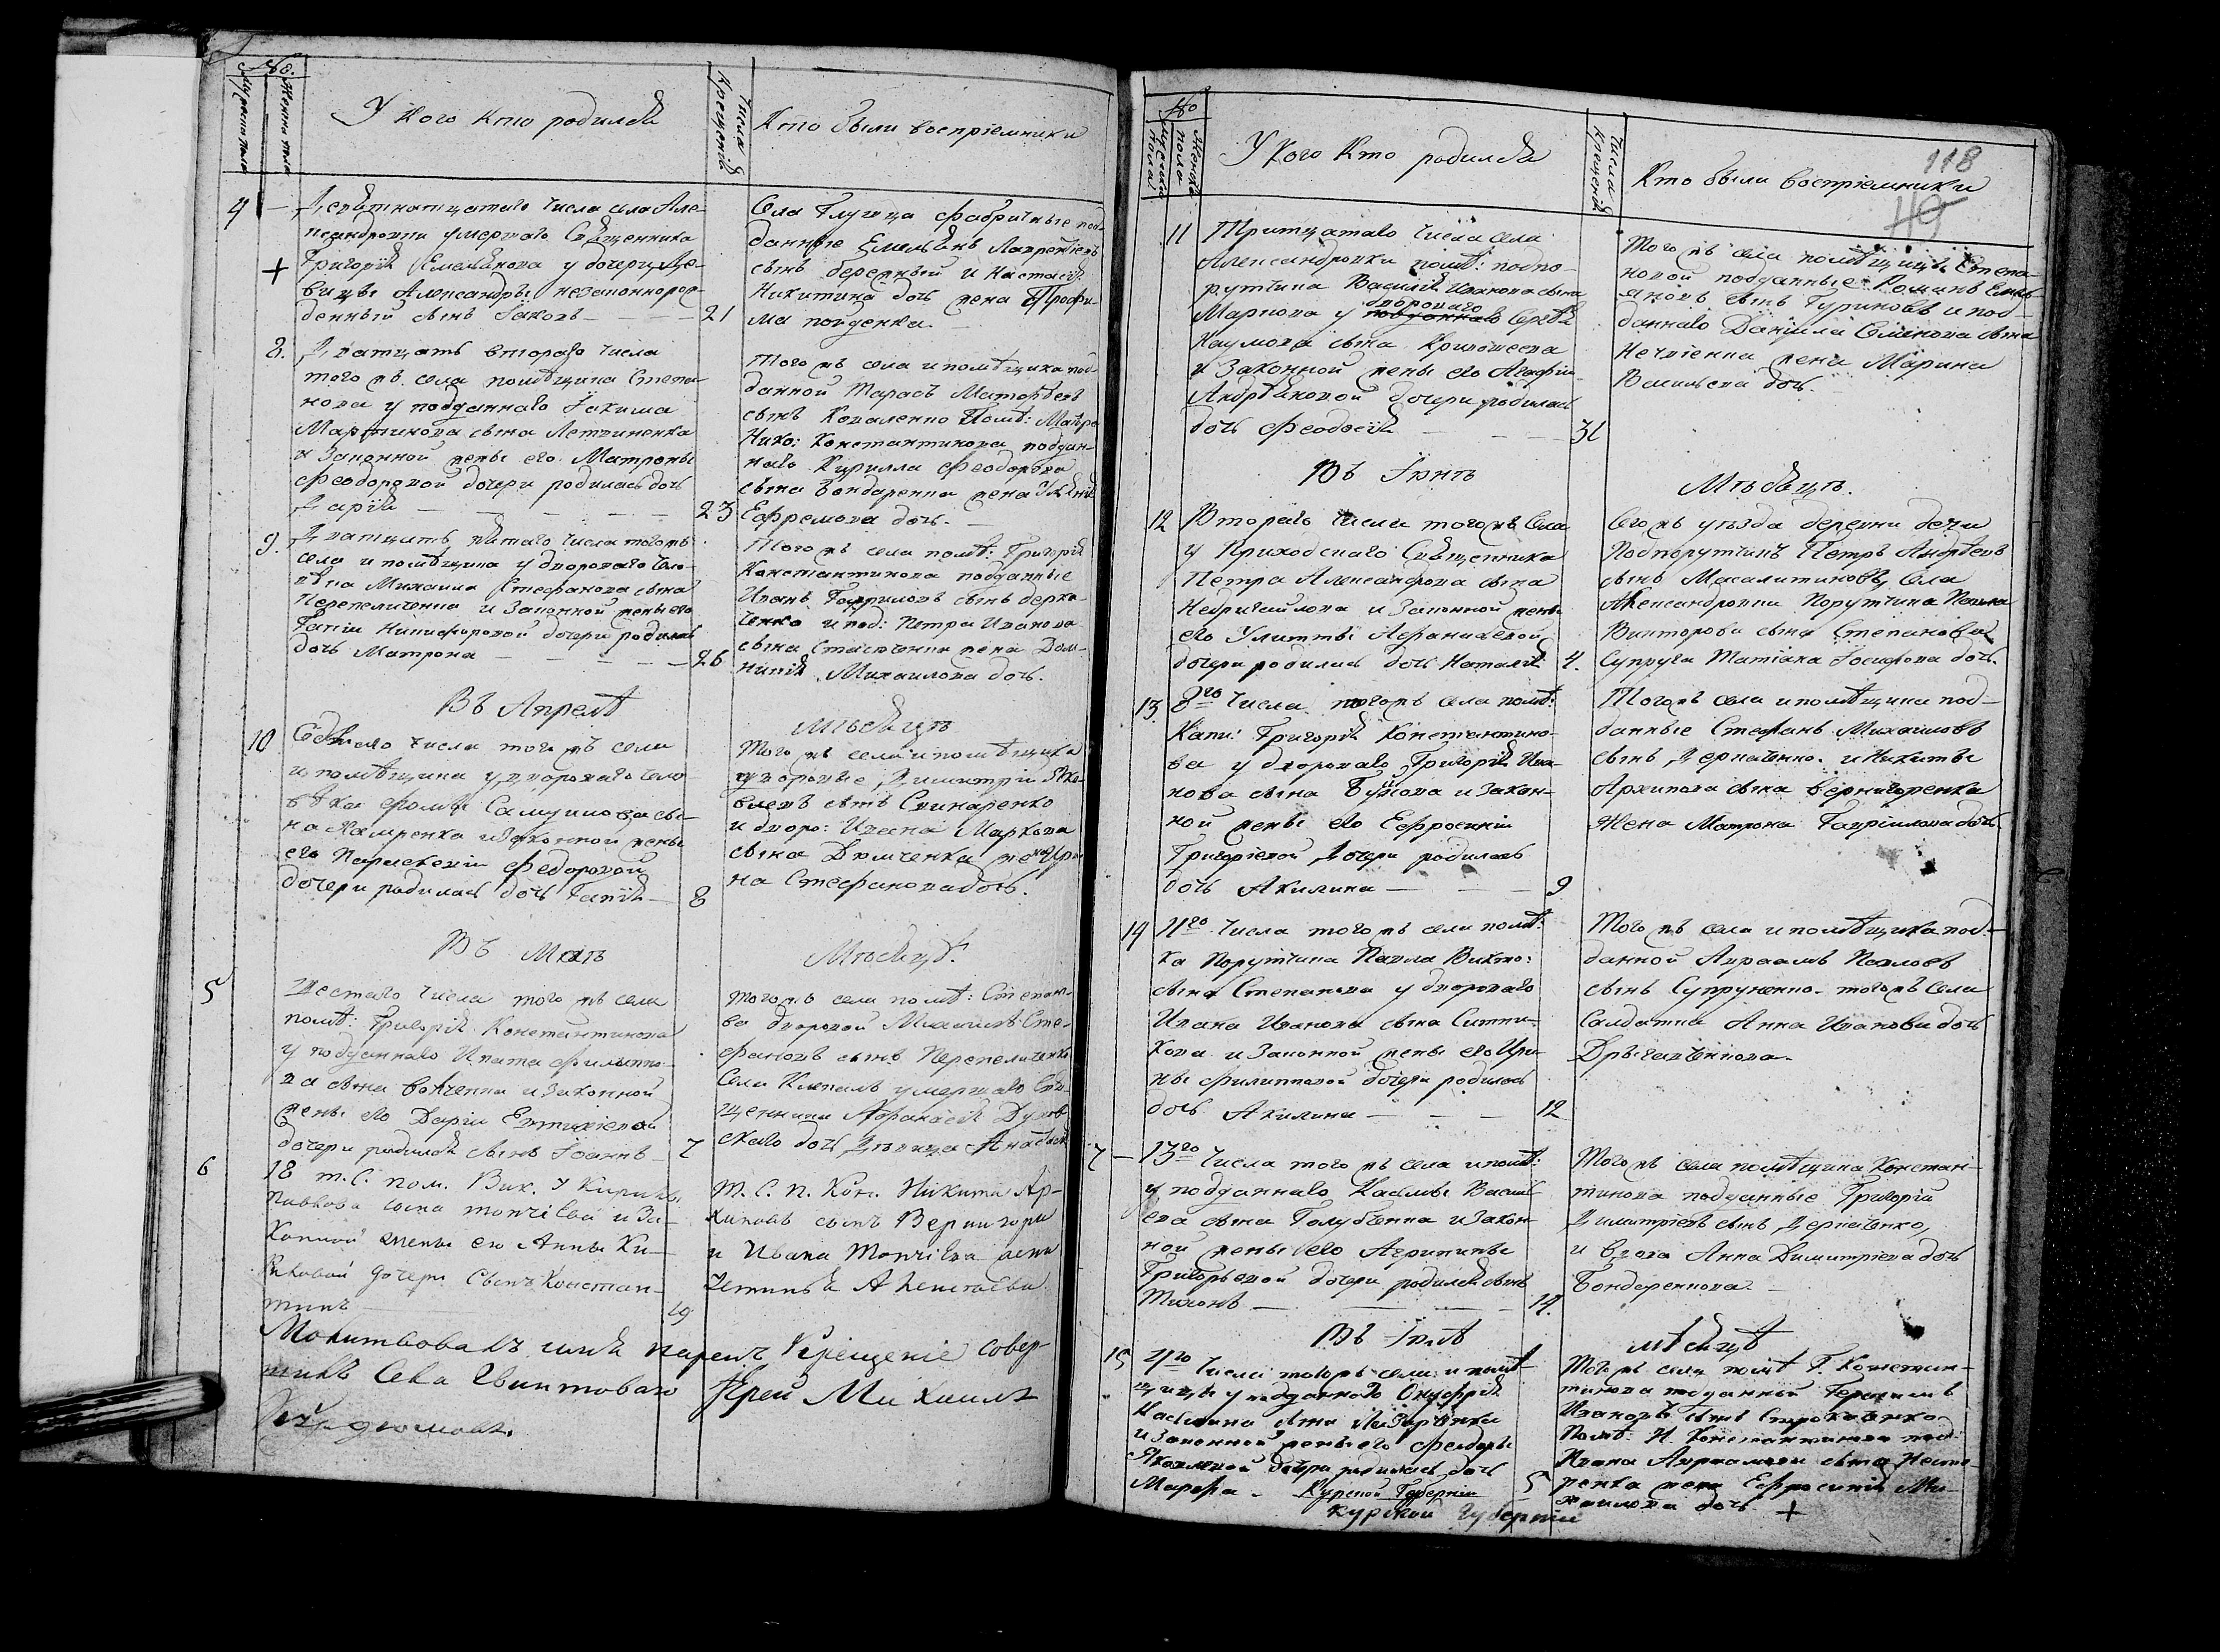 №.
Мужеска пола
Женска пола
У кого кто родился
Числа крещенія
Кто были воспріемники
4 — Девятнатцатого числа села Але-
ксандровки умершаго Священника
Григорія Емельянова у дочери Де-
вицы Александры незаконнорож-
денный сынъ Іаковъ — 21
Села Глухова фабричные под-
данные Емельянъ Лаврентіевъ
сынъ и Настасія
Никитина дочь жена Трофи-
ма
8. Дватцать втораго числа
того жъ села помѣщика Степа-
нова у подданнаго Іакима
Мартинова сына Летвиненка
и Законной жены его Матроны
Феодоровой дочери родилась дочь
Дарія — 23
Того жъ села и помѣщика под-
данной Тарасъ Матфѣевъ
сынъ Коваленко Помѣ:
Нико: Константинова поддан-
наго Кирилла Феодорова
сына Бондаренка жена
Ефремова дочь.
9. Дватцать пятаго числа того жъ
села и помѣщика у двороваго чело-
вѣка Михаила Стефанова сына
Перепеличенка и Законной жены его
Гапіи Никифоровой дочери родилась
дочь Матрона — 26
Того жъ села помѣ: Григорія
Константинова подданные
Иванъ Гавриловъ сынъ Дерка-
ченко и под: Петра Иванова
сына жена Дом-
никія Михаилова дочь.
Въ Апрелѣ
мѣсяцѣ
10 Седьмаго числа того жъ села
и помѣщика у двороваго чело-
вѣка Фомы Самуилова сы-
на и Законной жены
его Параскевіи Федоровой
дочери родилась дочь Гапія — 8
Того жъ села и помѣщика
дворовые Димитрій Яко-
влевъ сынъ Слинаренко
и дворо: Ивана Маркова
сына Дюмченка жена Ири-
на Стефанова дочь.
Въ Маѣ
Мѣсяцѣ.
5 Шестаго числа того жъ села
помѣ: Григорія Константинова
у подданнаго Ипата Филиппо-
ва сына и Законной
жены его Даріи Евтихіевой
дочери родился сынъ Іоаннъ — 7
того жъ села помѣ: Степано-
ва дворовой Михаилъ Сте-
фановъ сынъ Перепеличенко
Села умершаго Свя-
щенника Афанасія
скаго дочь Дѣвица Анастасія
6 18 т. С. пом. Вик. у Кирилы
Павлова сына Топчіева и За-
конной жены его Анны Ки-
риловой дочери Сынъ Констан-
тинъ — 19
Т. С. П. Кон. Никита Ар-
хиповъ сынъ Вернигора
и Ивана Топчіева жена
Молитвовалъ имя нареклъ Крещеніе совер-
шилъ Села Гвинтоваго Іерей Михаилъ
№
Мужеска пола
Женска пола
У кого кто родился
Числа крещенія
118
Кто были воспріемники
49
11 Тритцатаго числа села
Александровки помѣ: подпо-
рутчика Василія Иванова сына
Маркова у двороваго Сергѣя
Наумова сына Кривошеева
и Законной жены его Агафіи
Андрѣяновой дочери родилась
дочь Феодосія — 31
Того жъ села помѣщицы Степа-
новой подданные Романъ Емель-
яновъ сынъ Гуриновъ и под-
даннаго Даніила Семенова сына
жена Марина
Васильева дочь
Въ Іюнѣ
Мѣсяцѣ.
12 Втораго числа того жъ села
у Приходскаго Священника
Петра Александрова сына
Недригайлова и Законной жены
его Улитты Афанасіевой
дочери родилась дочь Наталія 4.
Сего жъ уѣзда деревни
Подпорутчикъ Петръ Андрѣевъ
сынъ Масалитиновъ, Села
Александровки Порутчика Павла
Викторова сына Степанова
Супруга Татіана Іосифова дочь.
13. 8го числа того жъ села помѣ:
Капи: Григорія Константино-
ва у двороваго Григорія Ива-
нова сына Буйнова и Закон-
ной жены его Ефросиніи
Григоріевой Дочери родилась
дочь Акилина — 9
Того жъ села и помѣщика под-
данные Стефанъ Михаиловъ
сынъ Деркаченко. и Никиты
Архипова сына Вернигоренка
жена Матрона Гавріилова дочь
14 11го числа того жъ села помѣ:
ка Порутчика Павла Викто:
сына Степанова у двороваго
Ивана Иванова сына Ситни-
кова и Законной жены его Ири-
ны Филипповой дочери родилась
дочь Акилина — 12
Того жъ села и помѣщика под-
данной Авраамъ Павловъ
сынъ Супруненко. того жъ Села
Салдатка Анна Иванова дочь
7 — 13го числа того жъ села и помѣ:
у подданнаго Касмы Василь-
ева сына Голубченка и Закон-
ной жены его Агрипины
Григорьевой дочери родился сынъ
Тихонъ — 14.
Того жъ села помѣщика Констан-
тинова подданные Григорій
Димитріевъ сынъ Деркаченко,
и вдова Анна Димитріева дочь
Бондаренкова.
Въ Іюлѣ
мѣсяцѣ
15 4го числа того жъ села и помѣ-
щицы у подданнаго Онуфрія
сына
и Законной жены его Феодоры
Яковлевой дочери родилась дочь
Марфа — 5
Того жъ села помѣ Г. Констан-
тинова подданный Герасимъ
Ивановъ сынъ
Помѣ: Н. Константинова под:
Ивана Авраамова сына Несте-
ренка жена Ефросинія Ми-
хаилова дочь +
Курской Губерніи
Курской Губерніи